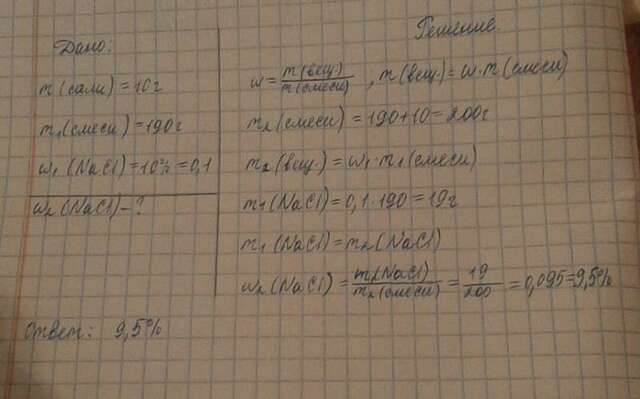 Дано:
m(соли) = 10г
m₁(смеси) = 190г
ω₁ (NaCl) = 10% = 0,1
ω₂ (NaCl) - ?
Решение.
ω = m(вещ) / m(смеси) , m(вещ) = ω · m(смеси)
m₂(смеси) = 190 + 10 = 200г
m₂(вещ.) = ω₁ · m₁(смеси)
m₁(NaCl) = 0,1 · 190 = 19г
m₁ (NaCl) = m₂(NaCl)
ω₂ (NaCl) = m₂(NaCl) / m₂(смеси) = 19 / 200 = 0,095 = 9,5%
Ответ: 9,5%